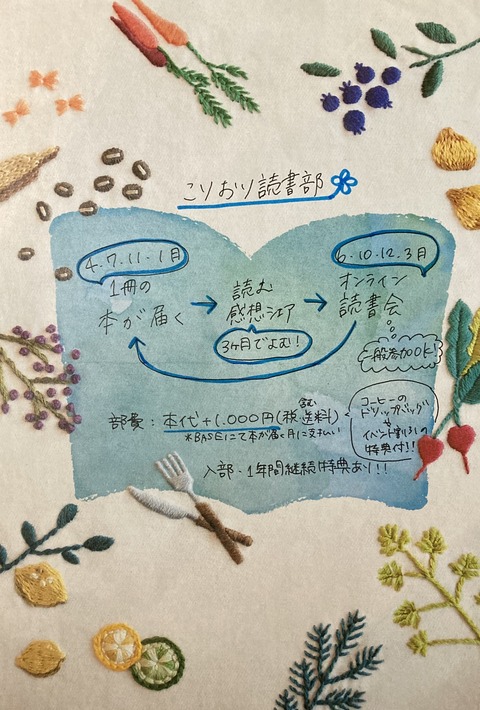 こりおり読書部
4.7.11.1月
1冊の
本が届く
読む
感想シェア
3ヶ月でよむ!
6.10.12.3月
オンライン
読書会
一般参加OK!
部費:本代+1.000円(税.送料)
含む
*BASEにて本が届く月に支払い
コーヒーの
ドリップバッグ
や
イベント割引の
特典付!!
入部・1年間継続特典あり!!